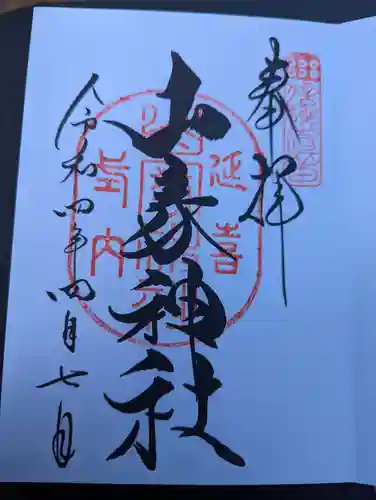 奉拝
山家神社
令和四年四月七日
延喜
式内